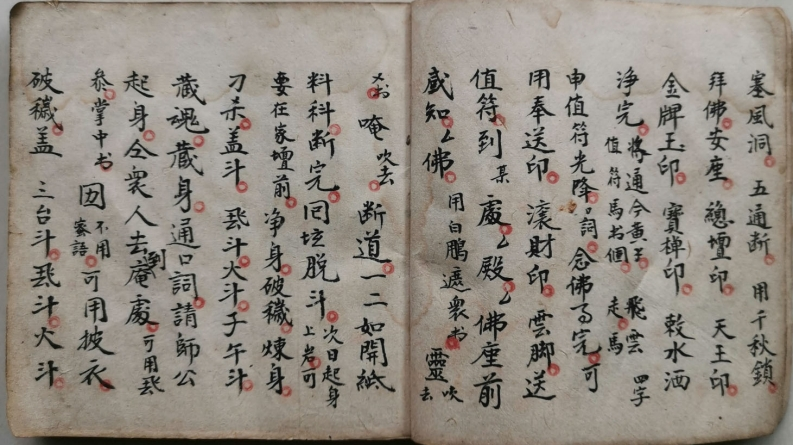 塞風洞 五通断 用千秋鎖
拜佛安座 總壇印 天王印
金牌玉印 寶樟印 敕水洒
浄完 將通今黄王 值符馬书個 飛雲走馬 四字
申值符光降 口詞 念佛 完 可
用奉送印 滚財印 雲脚送
值符到 某 處 殿 佛座前
感知 佛 用白鵬遮衆书 靈 吹去
书 唵 吹去 断道一二如開紙
料科断完回坛脱斗 次日起身上岩可
要在家壇前 净身破穢煉身
刀杀盖斗 斗火斗子午斗
蔵魂蔵身通口詞請師公
起身仝衆人去到庵處 可用
叅掌中书 不用寨語 可用披衣
破穢盖 三台斗 斗火斗